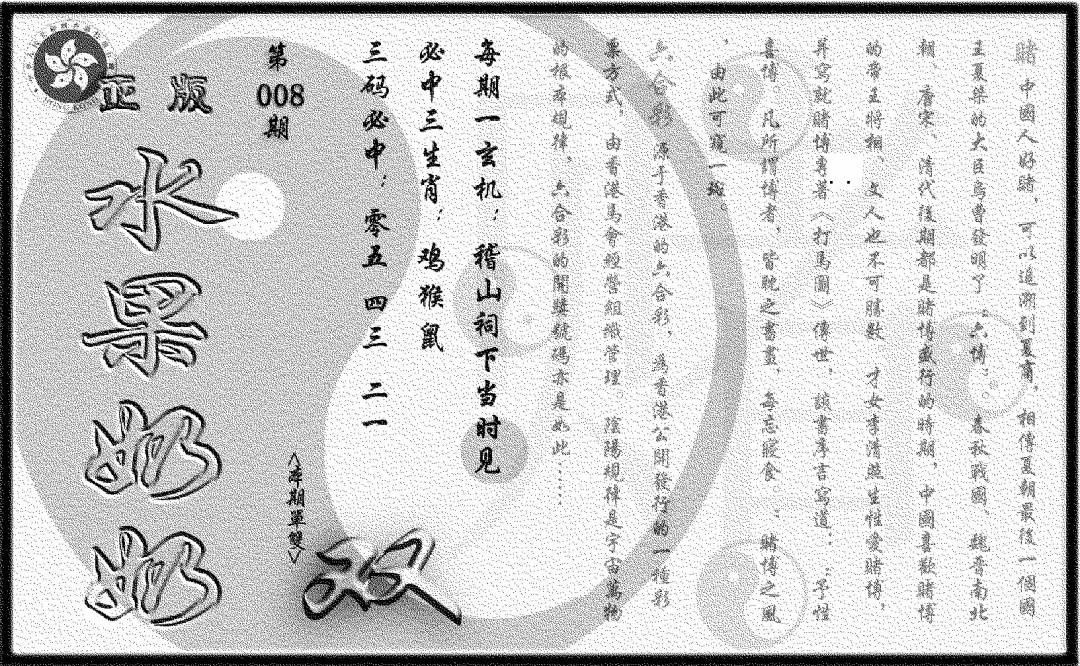 賭 中國人好賭，可以追溯到夏商，相傳夏朝最後一個國
王夏桀的大臣烏曹發明了：六博：。春秋戰國、魏晋南北
朝、唐宋、清代後期都是賭博盛行的時期，中國喜歡賭博
的帝王將相 文人也不可勝數 才女李清照生性愛賭博，
并寫就賭博專著《打馬圖》傳世，該書序言寫道：：予性
喜博，凡所謂博者，皆耽之晝晝，每忘寢食。：賭博之風
，由此可窺一斑。
六合彩 源于香港的六合彩，為香港公開發行的一種彩
票方式，由香港馬會經營組織管理。陰陽規律是宇宙萬物
的根本規律，六合彩的開獎號碼亦是如此……
每期一玄机；稽山祠下当时见
必中三生肖；鸡猴鼠
三码必中；零五 四三 二一
第
008
期
<本期單雙>
双
正版
水果奶奶